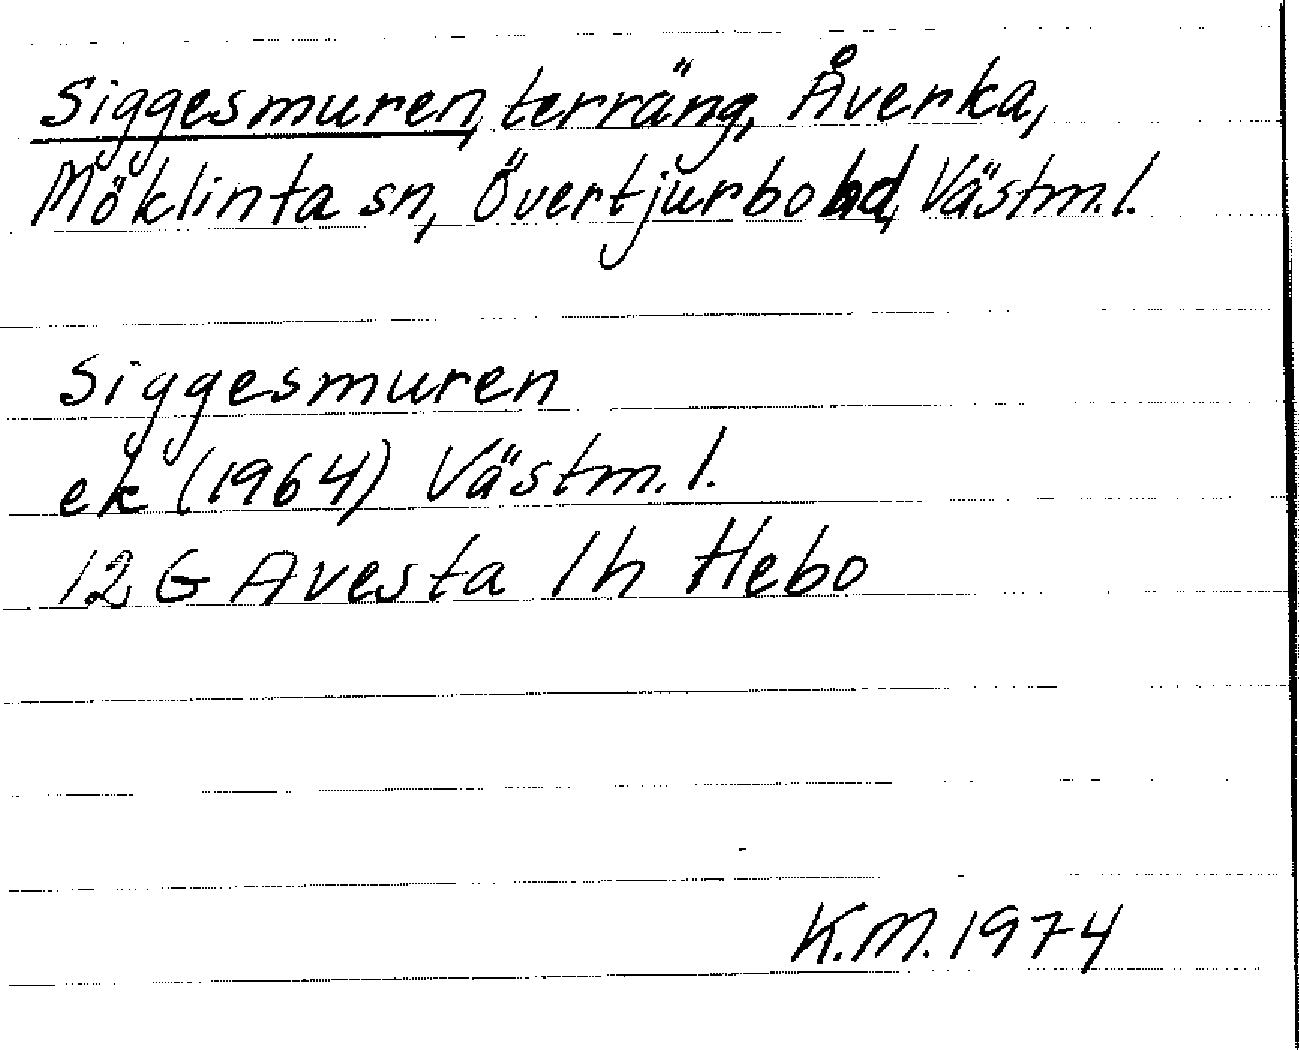 Siggesmuren, terräng, Åverka,
Möklinta sn, Övertjurbo hd, Västm.l.
Siggesmuren
ek (1964) Västm.l.
12 G Avesta 1h Hebo
K.M. 1974